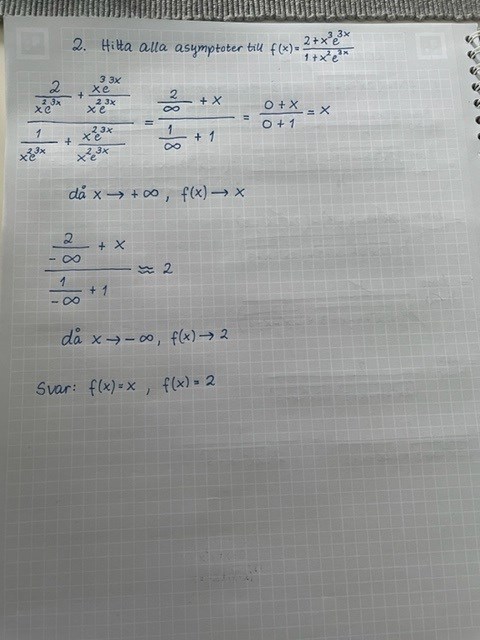 2. Hitta alla asymptoter till f(x) = \frac{2+x^3e^{3x}}{1+x^2e^{3x}}
\frac{\frac{2}{x^2e^{3x}} + \frac{x^3e^{3x}}{x^2e^{3x}}}{\frac{1}{x^2e^{3x}} + \frac{x^2e^{3x}}{x^2e^{3x}}} = \frac{\frac{2}{∞} + x}{\frac{1}{∞} + 1} = \frac{0+x}{0+1} = x
då x → +∞, f(x) → x
\frac{\frac{2}{-∞} + x}{\frac{1}{-∞} + 1} ≈ 2
då x → -∞, f(x) → 2
Svar: f(x) = x , f(x) = 2